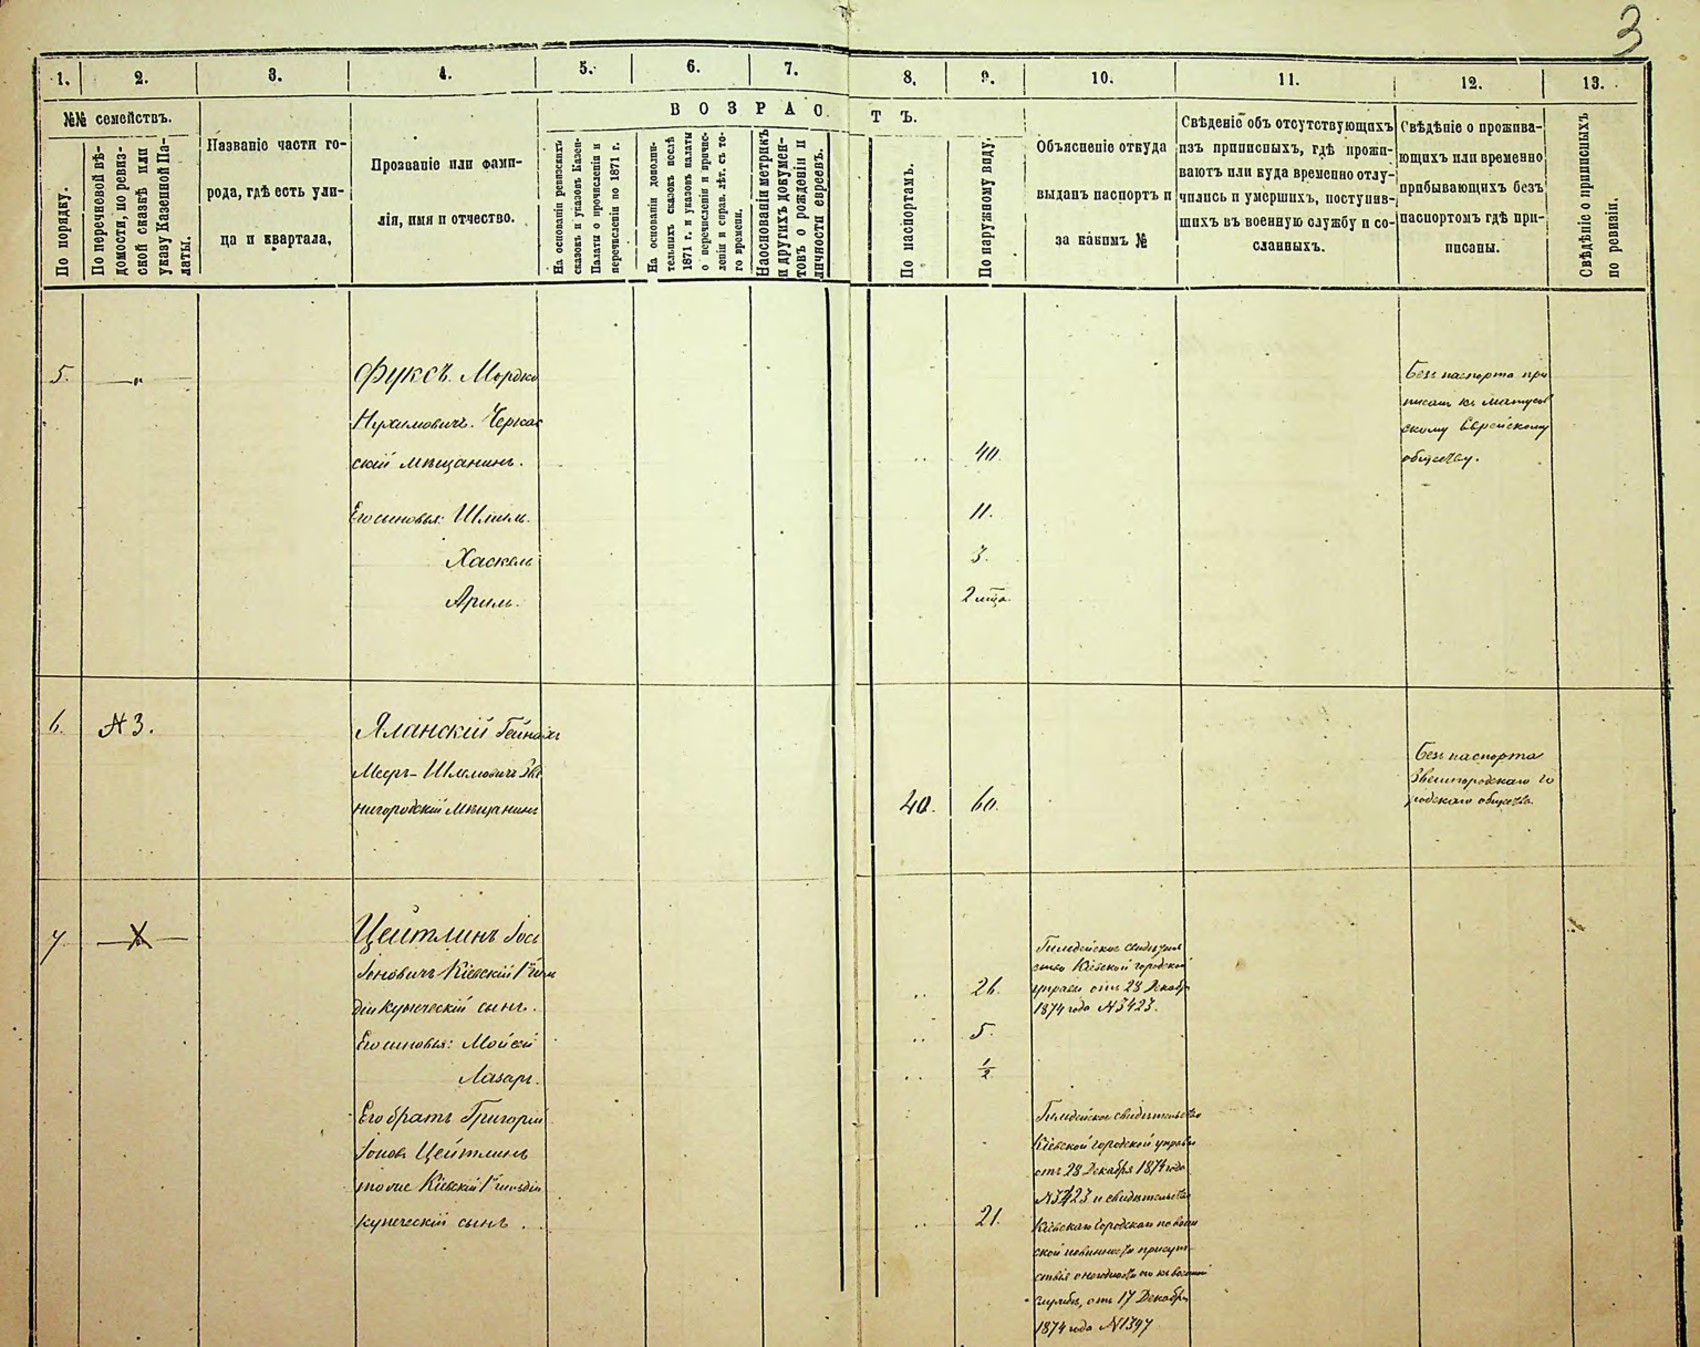 3
1. 2. 3. 4. 5. 6. 7. 8. 9. 10. 11. 12. 13.
№№ семействъ.
По порядку.
По перечневой вѣ-
домости, по ревиз-
ской сказкѣ или
указу Казенной Па-
латы.
Названіе части го-
рода, гдѣ есть ули-
ца и квартала,
Прозваніе или фами-
лія, имя и отчество.
ВОЗРАСТЪ.
На основаніи ревизскихъ
сказокъ и указовъ Казен-
Палаты о причисленіи и
перечисленіи по 1871 г.
На основаніи дополни-
тельныхъ сказокъ послѣ
1871 г. и указовъ палаты
о перечисленіи и причис-
леніи и справ. лѣт. съ то-
го времени.
На основаніи метрикъ
и другихъ докумен-
товъ о рожденіи и
личности евреевъ.
По паспортамъ.
По наружному виду.
Объясненіе откуда
выданъ паспортъ и
за какимъ №
Свѣденіе объ отсутствующихъ
изъ приписныхъ, гдѣ прожи-
ваютъ или куда временно отлу-
чились и умершихъ, поступив-
шихъ въ военную службу и со-
сланныхъ.
Свѣдѣніе о прожива-
ющихъ или временно
прибывающихъ безъ
паспортомъ гдѣ при-
писаны.
Свѣдѣніе о приписныхъ
по ревизіи.
5. —„— Фуксъ Мордко
Нухимовичъ. Черкас
скій мѣщанинъ. .. 40.
Безъ паспорта при
писанъ къ
скому Еврейскому
обществу.
Его сыновья: 11.
Хаскель 3.
2 мца.
6. №3. Яланскій
Мееръ-Шлемовичъ Зве
нигородскій мѣщанинъ 40. 60.
Безъ паспорта
Звенигородскаго го
родскаго общества.
7. Цейтлинъ
Іоновичъ Кіевскій 1й гил
діи купеческій сынъ. .. 26.
Гильдейское свидѣтель
ство Кіевской городской
управы отъ 28 Декабр
1874 года №3423.
Его сыновья: Мойсей .. 5.
Лазарь. .. 1/2
Его братъ Григорій
Іоновъ Цейтлинъ
тоже Кіевскій 1й гильдіи
купеческій сынъ. .. 21.
Гильдейское свидѣтельство
Кіевской городской управы
отъ 28 Декабря 1874 года
№3423 и свидѣтельство
Кіевскаго Городскаго по воин
ской повинности присут
ствія о негодности его къ военной
службѣ, отъ 17 Декабря
1874 года №1397